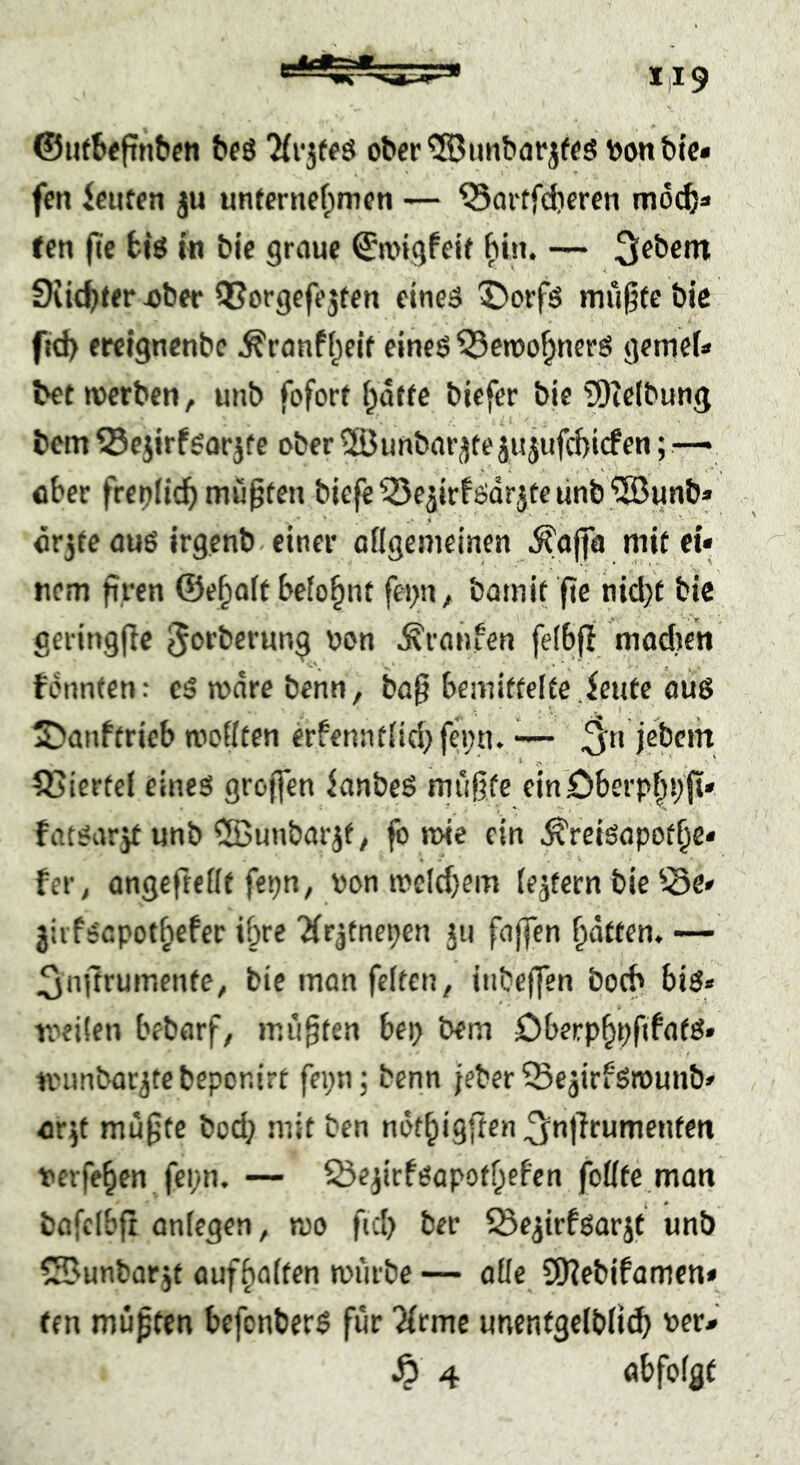 119
Gutbefinden des Arztes oder Wundarztes von die-
sen Leuten zu unternehmen — Bartscheren möch-
ten sie bis in die graue Ewigkeit hin. — Jedem
Richter oder Vorgesezten eines Dorfs müßte die
sich ereignende Krankheit eines Bewohners gemel-
det werden, und sofort hätte dieser die Meldung
dem Bezirksarzte oder Wundarzte zuzuschicken; —
aber freylich müßten diese Bezirksärzte und Wund-
ärzte aus irgend einer allgemeinen Kassa mit ei-
nem fixen Gehalt belohnt seyn, damit sie nicht die
geringste Forderung von Kranken selbst machen
könnten: es wäre denn, daß bemittelte Leute aus
Danktrieb wollten erkenntlich seyn. — In jedem
Viertel eines grossen Landes müßte ein Oberphysi-
katsarzt und Wundarzt, so wie ein Kreisapothe-
ker, angestellt seyn, von welchem leztern die Be-
zirksapotheker ihre Arztneyen zu fassen hätten. —
Instrumente, die man selten, indessen doch bis-
weilen bedarf, müßten bey dem Oberphysikats-
wundarzte deponirt seyn; denn jeder Bezirkswund-
arzt müßte doch mit den nöthigsten Instrumenten
versehen seyn. — Bezirksapotheken sollte man
daselbst anlegen, wo sich der Bezirksarzt und
Wundarzt aufhalten würde — alle Medikamen-
ten müßten besonders für Arme unentgeldlich ver-
H 4 abfolgt